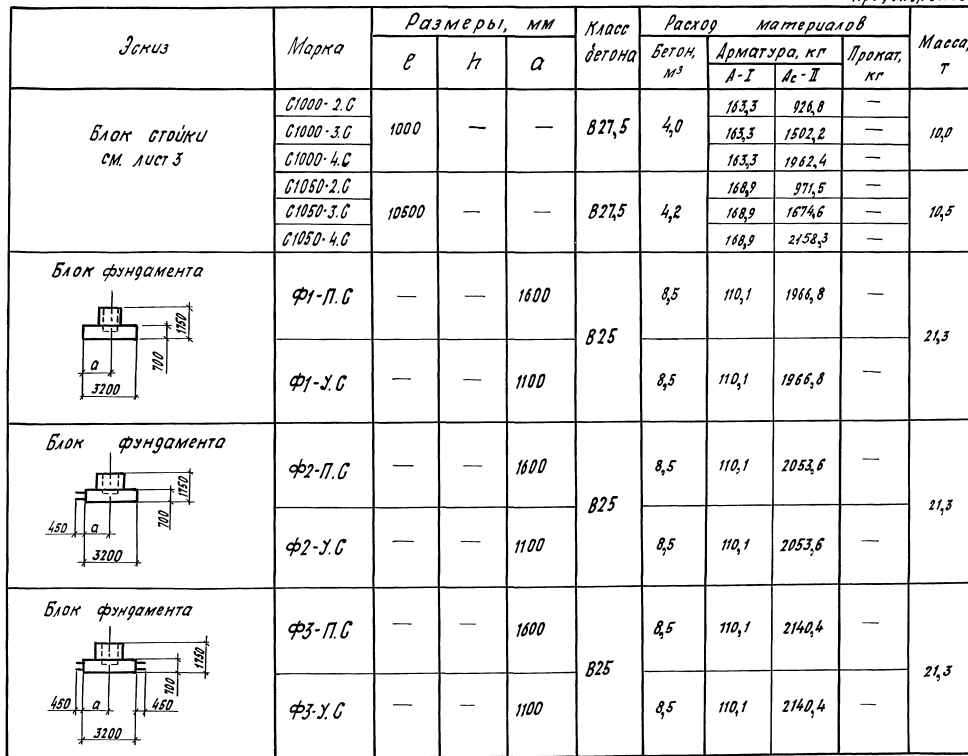 Эскиз | Марка | Размеры, мм | Класс бетона | Расход материалов | Масса, т
ℓ | h | a | Бетон, м³ | Арматура, кг | Прокат, кг
А-I | Ас-II
Блок стойки см. лист 3
С1000-2.С | 1000 | — | — | В27,5 | 4,0 | 163,3 | 926,8 | — | 10,0
С1000-3.С | 163,3 | 1502,2 | —
С1000-4.С | 163,3 | 1962,4 | —
С1050-2.С | 10500 | — | — | В27,5 | 4,2 | 168,9 | 971,5 | — | 10,5
С1050-3.С | 168,9 | 1674,6 | —
С1050-4.С | 168,9 | 2158,3 | —
Блок фундамента
1750
700
a
3200
Ф1-П.С | — | — | 1600 | В25 | 8,5 | 110,1 | 1966,8 | — | 21,3
Ф1-У.С | — | — | 1100 | 8,5 | 110,1 | 1966,8 | —
Блок фундамента
1750
700
450 a
3200
Ф2-П.С | — | — | 1600 | В25 | 8,5 | 110,1 | 2053,6 | — | 21,3
Ф2-У.С | — | — | 1100 | 8,5 | 110,1 | 2053,6 | —
Блок фундамента
1750
700
450 a 450
3200
Ф3-П.С | — | — | 1600 | В25 | 8,5 | 110,1 | 2140,4 | — | 21,3
Ф3-У.С | — | — | 1100 | 8,5 | 110,1 | 2140,4 | —